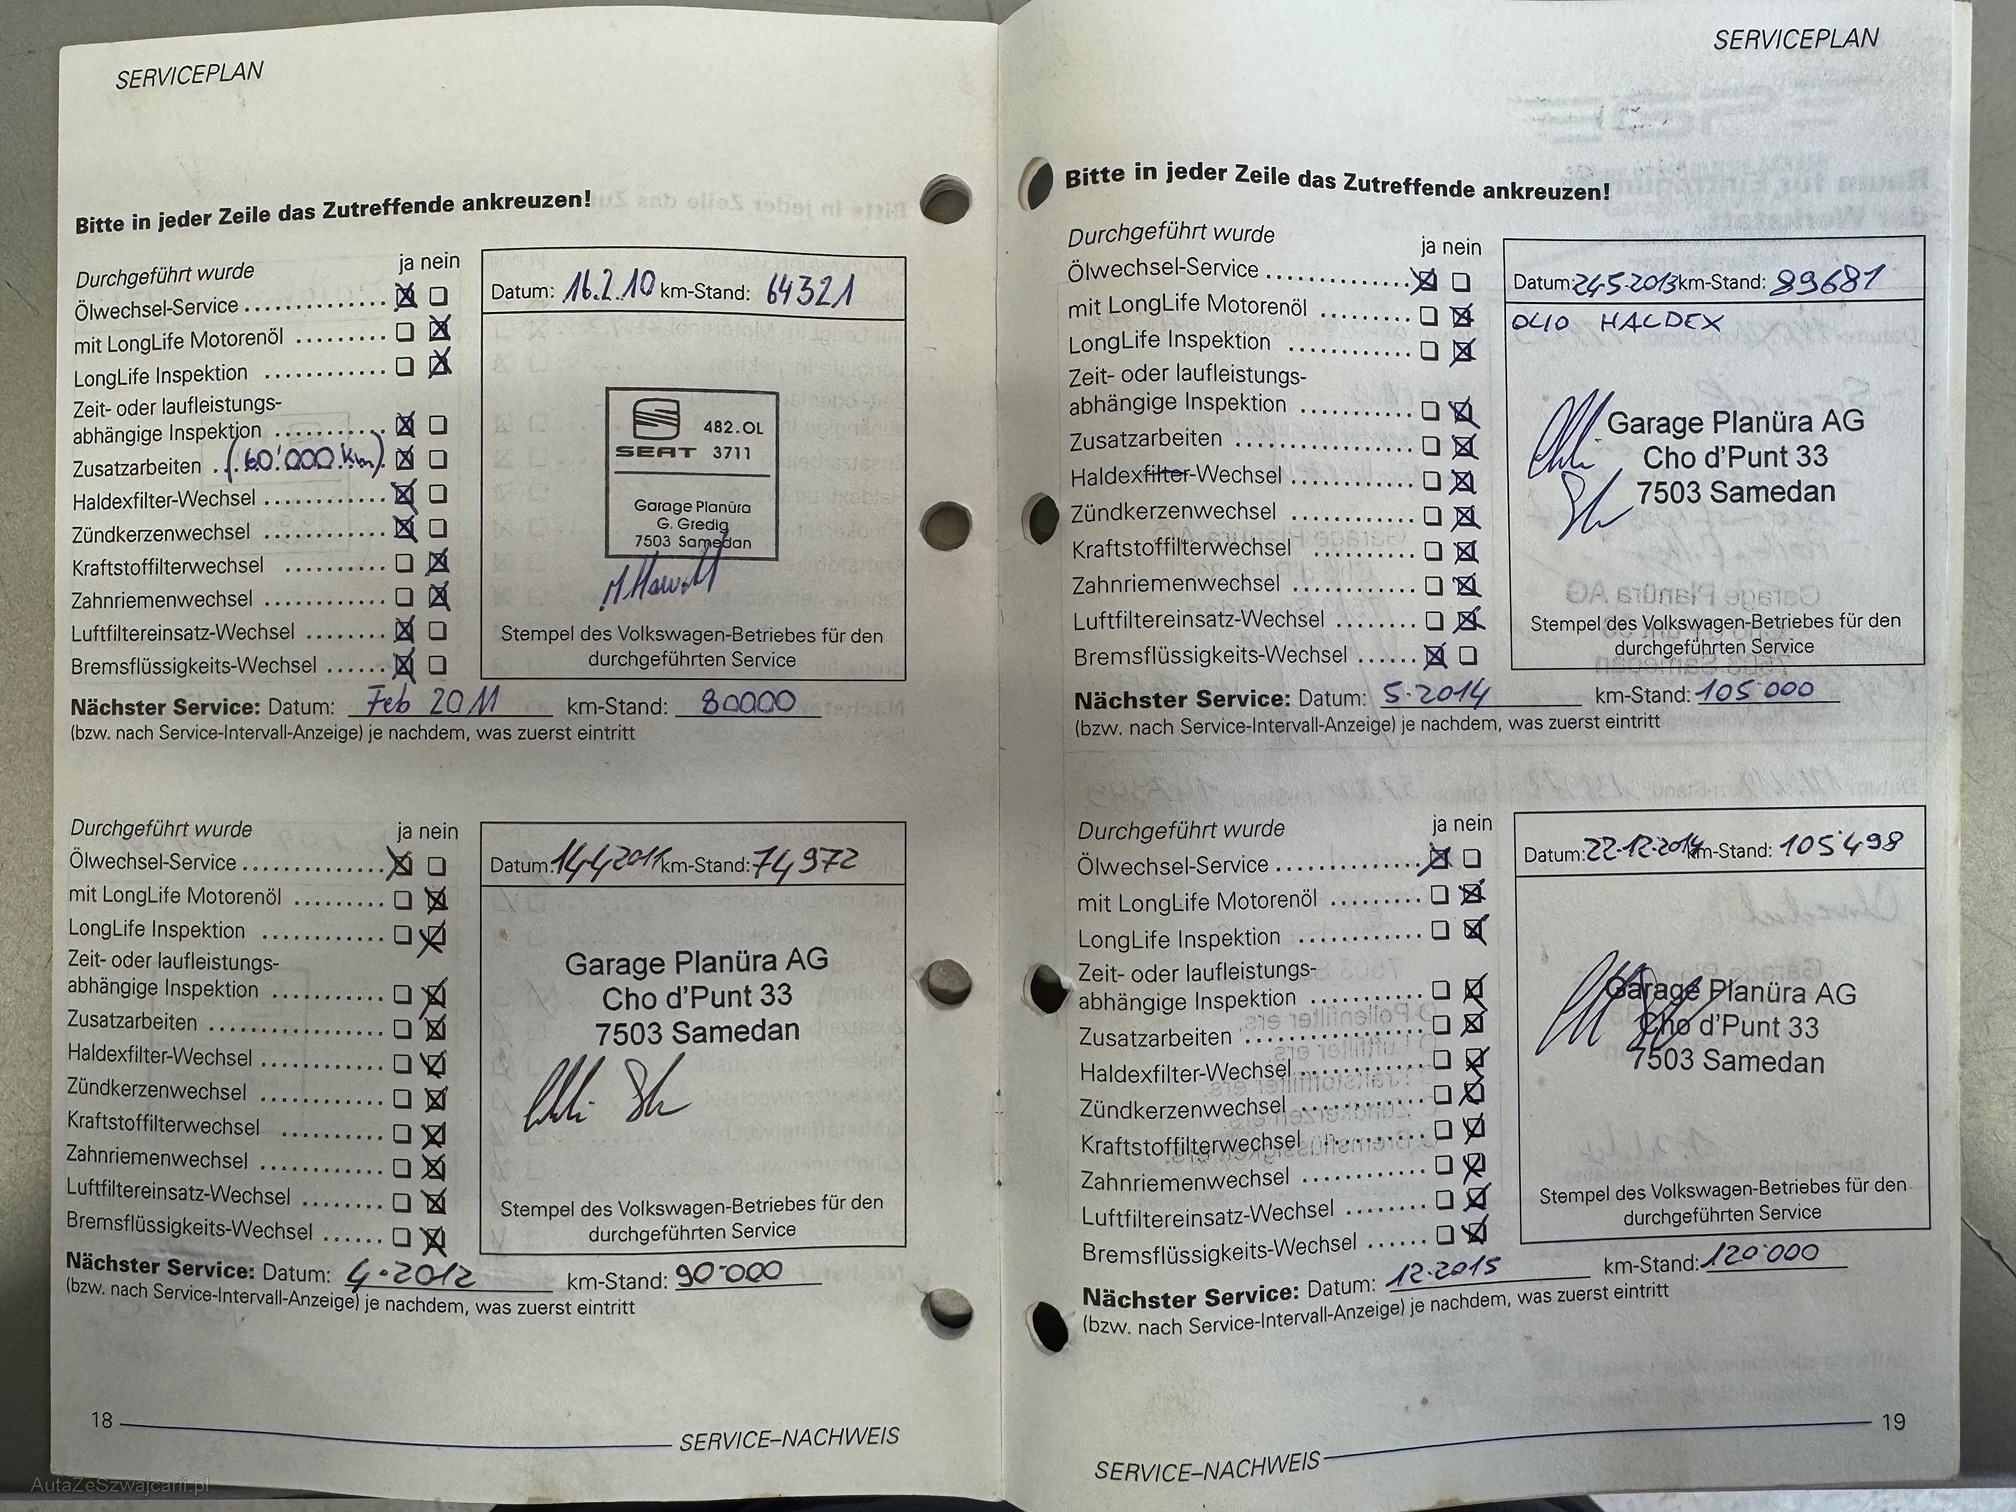 SERVICEPLAN
Bitte in jeder Zeile das Zutreffende ankreuzen!
Durchgeführt wurde ja nein
Ölwechsel-Service
mit LongLife Motorenöl
LongLife Inspektion
Zeit- oder laufleistungs-
abhängige Inspektion
Zusatzarbeiten (60'000 km)
Haldexfilter-Wechsel
Zündkerzenwechsel
Kraftstoffilterwechsel
Zahnriemenwechsel
Luftfiltereinsatz-Wechsel
Bremsflüssigkeits-Wechsel
Datum: 16.2.10 km-Stand: 64321
482.OL
SEAT 3711
Garage Planüra
G. Gredig
7503 Samedan
Stempel des Volkswagen-Betriebes für den
durchgeführten Service
Nächster Service: Datum: Feb 2011 km-Stand: 80000
(bzw. nach Service-Intervall-Anzeige) je nachdem, was zuerst eintritt
Durchgeführt wurde ja nein
Ölwechsel-Service
mit LongLife Motorenöl
LongLife Inspektion
Zeit- oder laufleistungs-
abhängige Inspektion
Zusatzarbeiten
Haldexfilter-Wechsel
Zündkerzenwechsel
Kraftstoffilterwechsel
Zahnriemenwechsel
Luftfiltereinsatz-Wechsel
Bremsflüssigkeits-Wechsel
Datum: 14.4.2011 km-Stand: 74972
Garage Planüra AG
Cho d'Punt 33
7503 Samedan
Stempel des Volkswagen-Betriebes für den
durchgeführten Service
Nächster Service: Datum: 4.2012 km-Stand: 90'000
(bzw. nach Service-Intervall-Anzeige) je nachdem, was zuerst eintritt
18
SERVICE–NACHWEIS
SERVICEPLAN
Bitte in jeder Zeile das Zutreffende ankreuzen!
Durchgeführt wurde ja nein
Ölwechsel-Service
mit LongLife Motorenöl
LongLife Inspektion
Zeit- oder laufleistungs-
abhängige Inspektion
Zusatzarbeiten
Haldexfilter-Wechsel
Zündkerzenwechsel
Kraftstoffilterwechsel
Zahnriemenwechsel
Luftfiltereinsatz-Wechsel
Bremsflüssigkeits-Wechsel
Datum: 24.5.2013 km-Stand: 89681
OLIO HALDEX
Garage Planüra AG
Cho d'Punt 33
7503 Samedan
Stempel des Volkswagen-Betriebes für den
durchgeführten Service
Nächster Service: Datum: 5.2014 km-Stand: 105'000
(bzw. nach Service-Intervall-Anzeige) je nachdem, was zuerst eintritt
Durchgeführt wurde ja nein
Ölwechsel-Service
mit LongLife Motorenöl
LongLife Inspektion
Zeit- oder laufleistungs-
abhängige Inspektion
Zusatzarbeiten
Haldexfilter-Wechsel
Zündkerzenwechsel
Kraftstoffilterwechsel
Zahnriemenwechsel
Luftfiltereinsatz-Wechsel
Bremsflüssigkeits-Wechsel
Datum: 22.12.2014 km-Stand: 105'498
Garage Planüra AG
Cho d'Punt 33
7503 Samedan
Stempel des Volkswagen-Betriebes für den
durchgeführten Service
Nächster Service: Datum: 12.2015 km-Stand: 120'000
(bzw. nach Service-Intervall-Anzeige) je nachdem, was zuerst eintritt
SERVICE–NACHWEIS
19
AutaZeSzwajcarii.pl